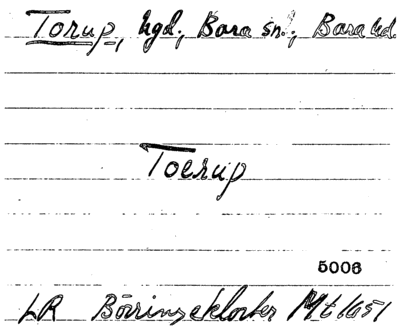 Torup, hgd, Bara sn., Bara hd.
Toerup
5006
LR Börringekloster Mt 1651